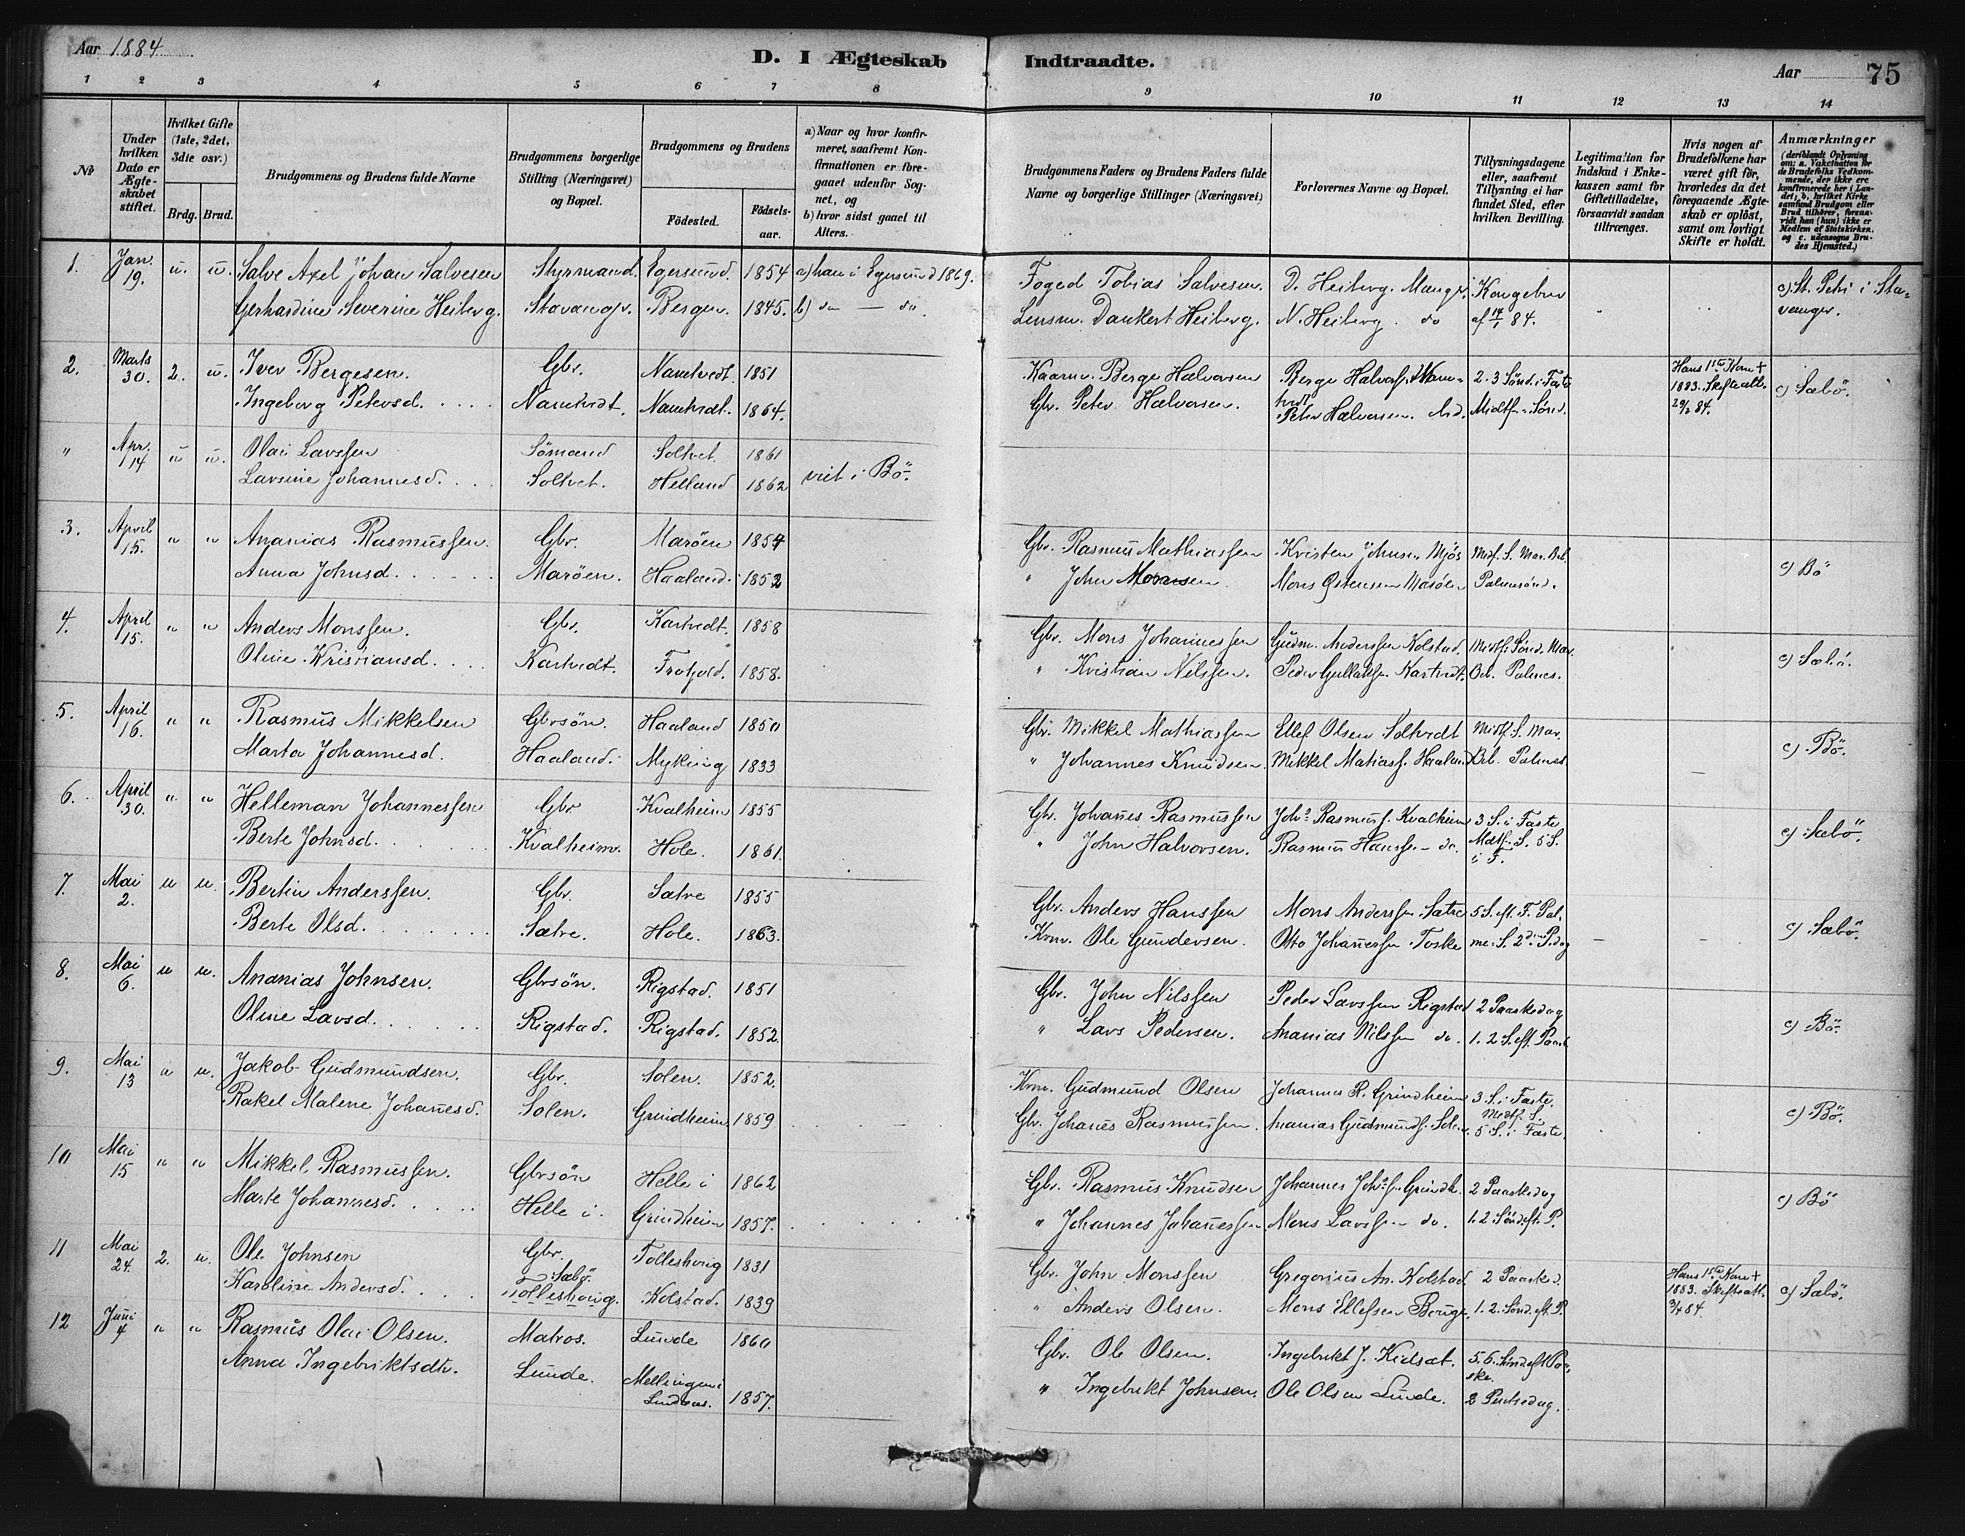 Aar 1884
D. I Ægteskab Indtraadte.
Aar 75
1 2 3 4 5 6 7 8 9 10 11 12 13 14
No
Under hvilken Dato er Ægteskabet stiftet.
Hvilket Gifte (1ste, 2det, 3die osv.)
Brdg. Brud.
Brudgommens og Brudens fulde Navne
Brudgommens borgerlige Stilling (Næringsvei) og Bopæl.
Brudgommens og Brudens
Födested. Födselsaar.
a) Naar og hvor konfirmeret, saafremt Konfirmationen er foregaaet udenfor Sognet, og
b) hvor sidst gaaet til Alters.
Brudgommens Faders og Brudens Faders fulde Navne og borgerlige Stillinger (Næringsvei)
Forlovernes Navne og Bopæl.
Tillysningsdagene eller, saafremt Tillysning ei har fundet Sted, efter hvilken Bevilling.
Legitimation for Indskud i Enkekassen samt for Giftetilladelse, forsaavidt saadan tiltrænges.
Hvis nogen af Brudefolkene har været gift för, hvorledes da det foregaaende Ægteskab er oplöst, samt om lovligt Skifte er holdt.
Anmærkninger
(deriblandt Oplysning om: a. Vakcination for de Brudefolks Vedkommende, der ikke ere konfirmerede her i Landet; b. hvilket Kirkesamfund Brudgom eller Brud tilhörer, forsaavidt han (hun) ikke er Medlem af Statskirken, og c. udensogns Brudes Hjemsted.)
1. Jan. 19. u. u. Salve Axel Johan Salvesen Styrmand. Egersund. 1854 a) han i Egersund 1869. Foged Tobias Salvesen. D. Heiberg. Manger. Kongebrev c) St. Petri i Sta-
Gerhardine Severine Heiberg. Stavanger. Bergen. 1845. b) do — do. Lensm. Dankert Heiberg. N. Heiberg. do af 14/1 84. vanger.
2. Marts 30. 2. u. Iver Bergesen. Gbr. Namtvedt. 1851 Kaarm. Berge Halvorsen Berge Halvors. Nam- 2. 3 Sönd. i Faste Hans 1ste Kone + c) Sæbö.
Ingeborg Petersd. Namtvedt. Namtvedt. 1864. Gbr. Peter Halvorsen. tvedt Peter Halvorsen. ibd. Midtf. Sönd. 1883. Skifteatt. 29/2 84.
" Apr. 14 u u. Olai Larssen Sömand Soltvet. 1861
Larsine Johannesd. Soltvet. Helland 1862 viet i Bö.
3. April 15. " " Ananias Rasmussen. Gbr. Maröen 1854 Gbr. Rasmus Mathiassen Kristen Johnsen Mjös Midf. S. Mar. Beb. c) Bö
Anna Johnsd. Maröen. Haaland. 1852 " John Monsen. Mons Östensen Maröen Palmesönd.
4. April 15. " " Anders Monssen. Gbr. Kartvedt. 1858 Gbr. Mons Johannessen Gudm. Anderssen Kolstad. Midtf. Sönd. Mar. c) Sæbö.
Oline Kristiansd. Kartvedt. Frotjold. 1858. " Kristian Nilssen. Peder Gullaks. Kartvedt. Beb. Palmes.
5. April 16. " " Rasmus Mikkelsen Gbrsön. Haaland 1850 Gbr. Mikkel Mathiassen Ellef Olsen Soltvedt Midtf. S. Mar. c) Bö.
Marta Johannesd. Haaland. Myking 1833 " Johannes Knudsen. Mikkel Matiass. Haaland Beb. Palmes.
6. April 30. " " Helleman Johannessen Gbr. Kvalheim 1855 Gbr. Johannes Rasmussen Johs Rasmuss. Kvalheim 3 S. i Faste c) Sæbö.
Berte Johnsd. Kvalheim. Hole. 1861. " John Halvorsen. Rasmus Hanss. – do. Midtf. S. 5 S. i F.
7. Mai 2. u u. Bertin Anderssen. Gbr. Sætre 1855 Gbr. Anders Hanssen Mons Anderssen Sætre 5 S. eft. F. Pal- c) Sæbö.
Berte Olsd. Sætre. Hole. 1863. Krm. Ole Gundersen. Otto Johannessen Toske me S. 2den P.dag
8. Mai 6. u u. Ananias Johnsen. Gbrsön. Rigstad. 1851 Gbr. John Nilssen Peder Larssen Rigstad 2 Paaskedag c) Bö.
Oline Larsd. Rigstad. Rigstad. 1852. " Lars Pedersen. Ananias Nilssen do. 1. 2 S. eft. Paask.
9. Mai 13 u u. Jakob Gudmundsen. Gbr. Solen. 1852. Krm. Gudmund Olsen Johannes R. Grindheim 3 S. i Faste. c) Bö.
Rakel Malene Johannesd. Solen. Grindheim 1859 Gbr. Johanes Rasmussen. Ananias Gudmunds. Solen. Midtf. S. 5 S. i Faste.
10 Mai 15 " " Mikkel Rasmussen. Gbrsön Helle i 1862 Gbr. Rasmus Knudsen Johannes Johs. Grindh. 2 Paaskedag c) Bö
Marte Johannesd. Helle i. Grindheim 1857. " Johannes Johannessen Mons Larssen do. 1. 2 Sönd eft. P.
11 Mai 24. 2. u. Ole Johnsen Gbr. Tolleshoug 1831 Gbr. John Monssen Gregorius An. Kolstad 2 Paasked. Hans 1ste Kone + c) Sæbö.
Karoline Andersd. Sæbö. Tolleshoug. Kolstad. 1839 " Anders Olsen. Mons Ellefsen Bouge. 1. 2. Sönd. eft. P. 1883. Skifteatt. 84
12 Juni 4 " " Rasmus Olai Olsen. Matros. Lunde 1860 Gbr. Ole Olsen. Ingebrikt J. Kidsæt. 5. 6. Sönd eft Paaske.
Anna Ingebriktsdtr. Lunde. Mellingen i Lindaas. 1857. " Ingebrikt Johnsen. Ole Olsen Lunde. 2 Pintsedag.